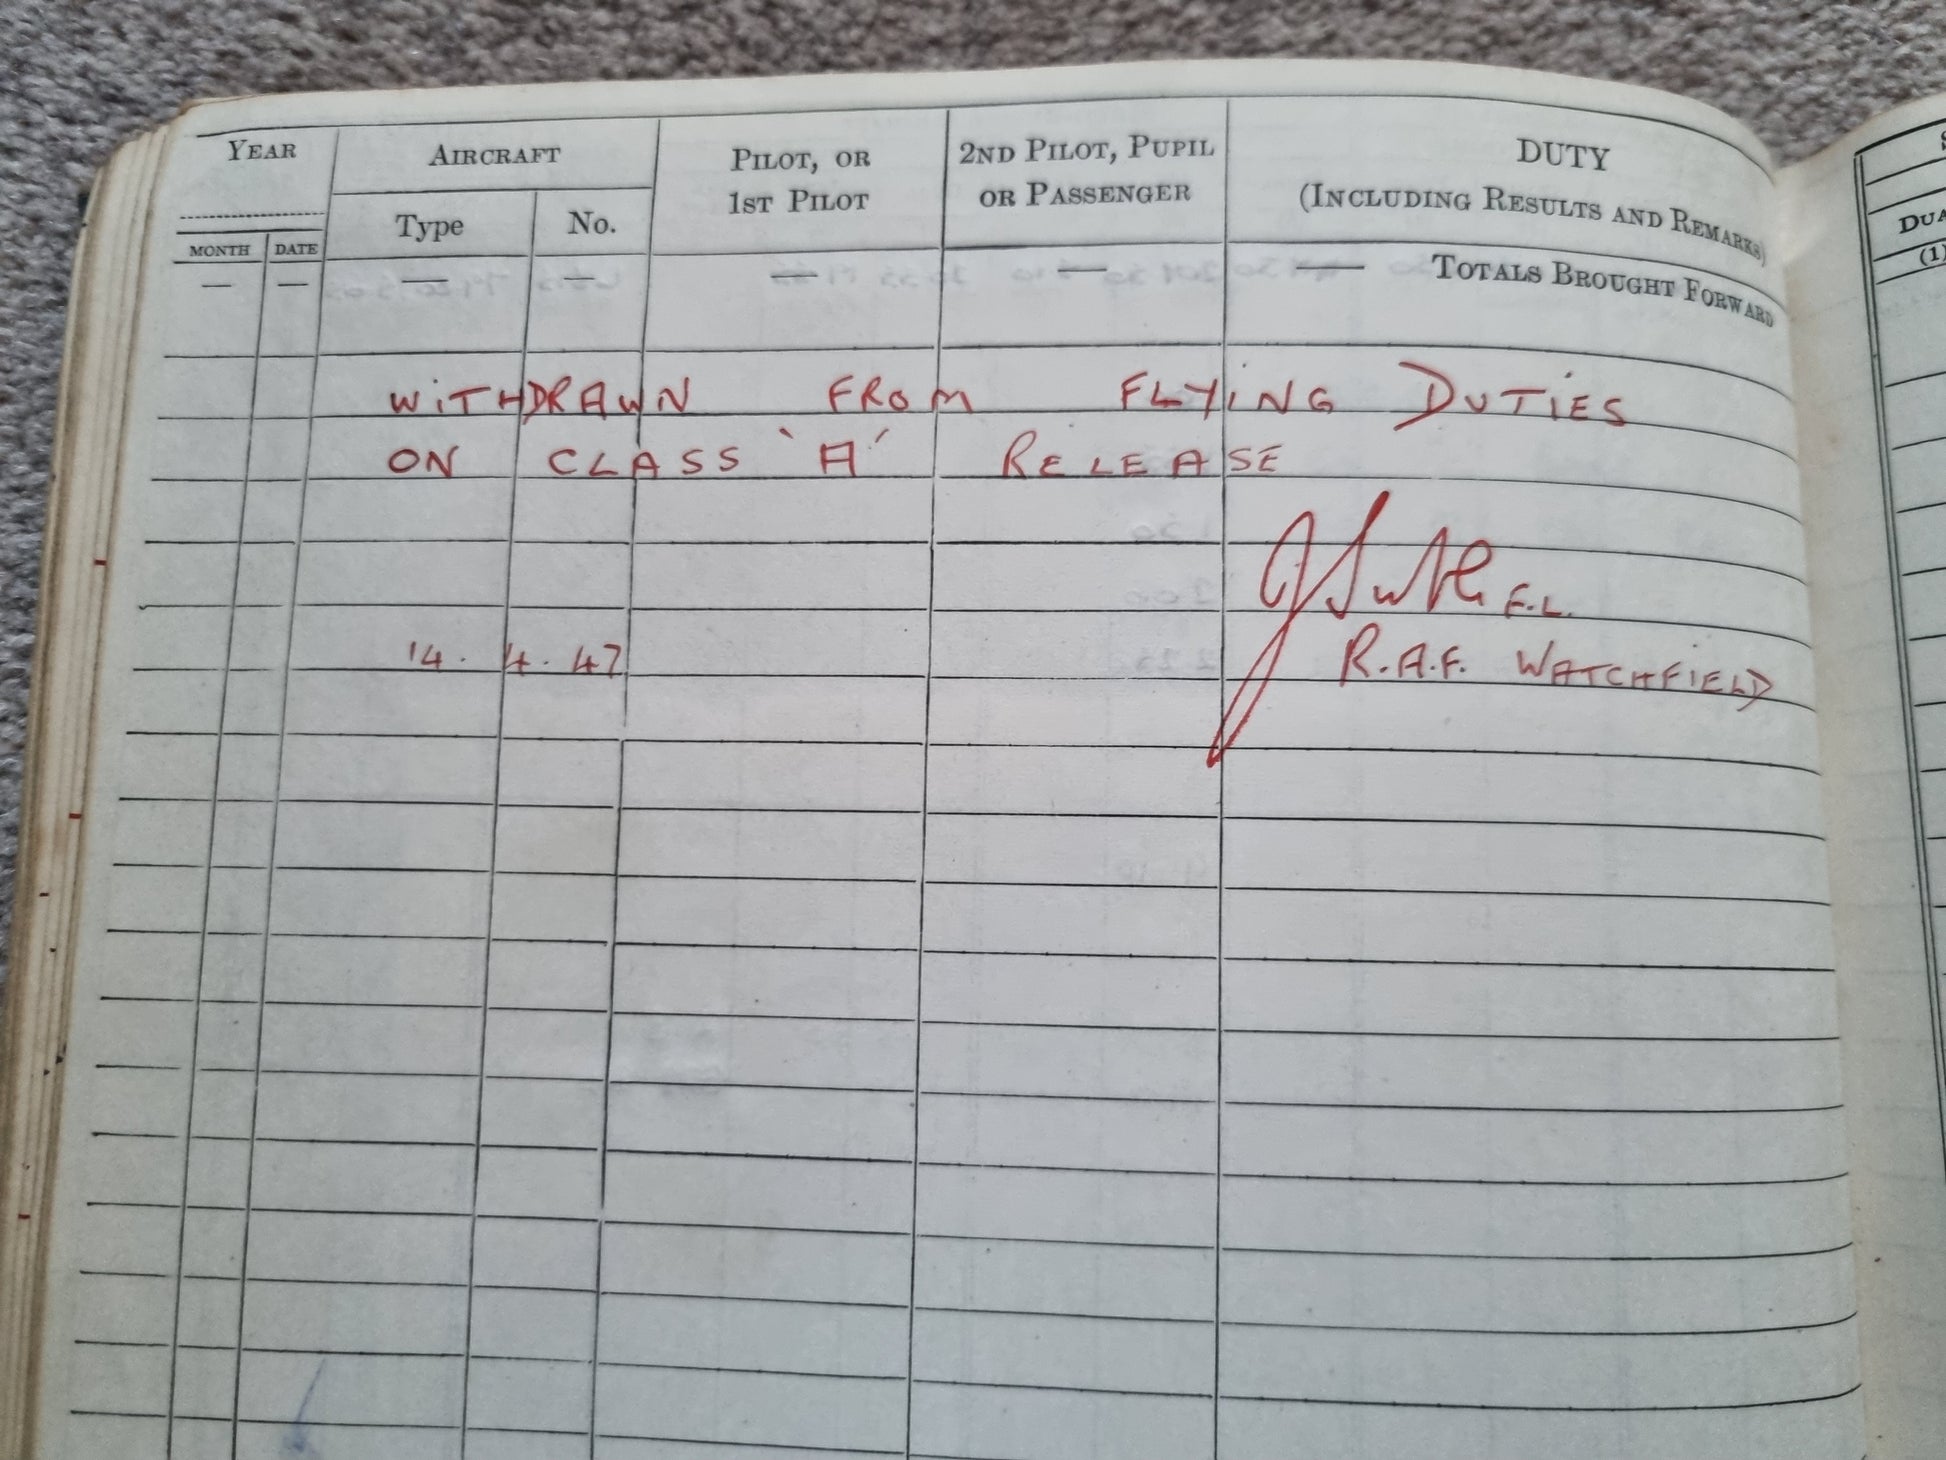 YEAR AIRCRAFT PILOT, OR 2ND PILOT, PUPIL DUTY
1ST PILOT OR PASSENGER (INCLUDING RESULTS AND REMARKS)
MONTH DATE Type No.
— — — — — — — TOTALS BROUGHT FORWARD
WITHDRAWN FROM FLYING DUTIES
ON CLASS 'A' RELEASE
F.L.
14. 4. 47 R.A.F. WATCHFIELD
DUA
(1)